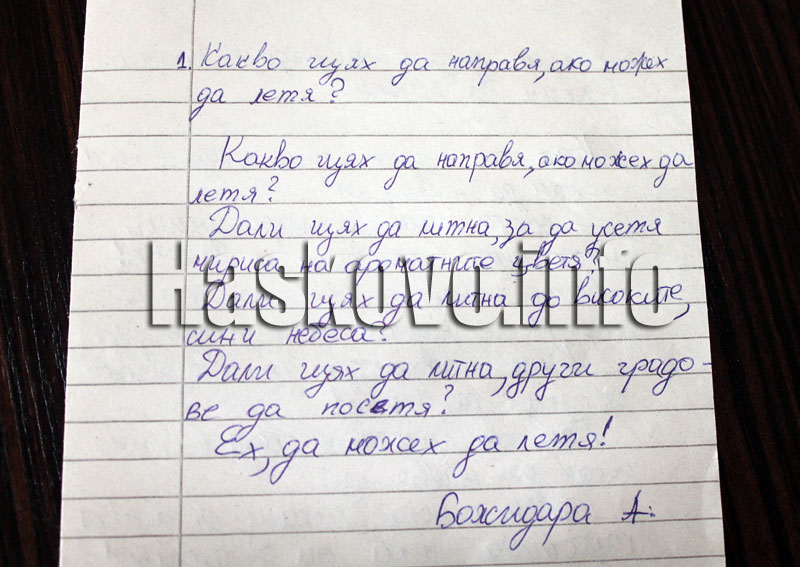 1. Какво щях да направя, ако можех
да летя?
Какво щях да направя, ако можех да
летя?
Дали щях да литна, за да усетя
мириса на ароматните цветя?
Haskovo.info
Дали щях да литна до високите,
сини небеса?
Дали щях да литна, други градо-
ве да посетя?
Ех, да можех да летя!
Божидара А.